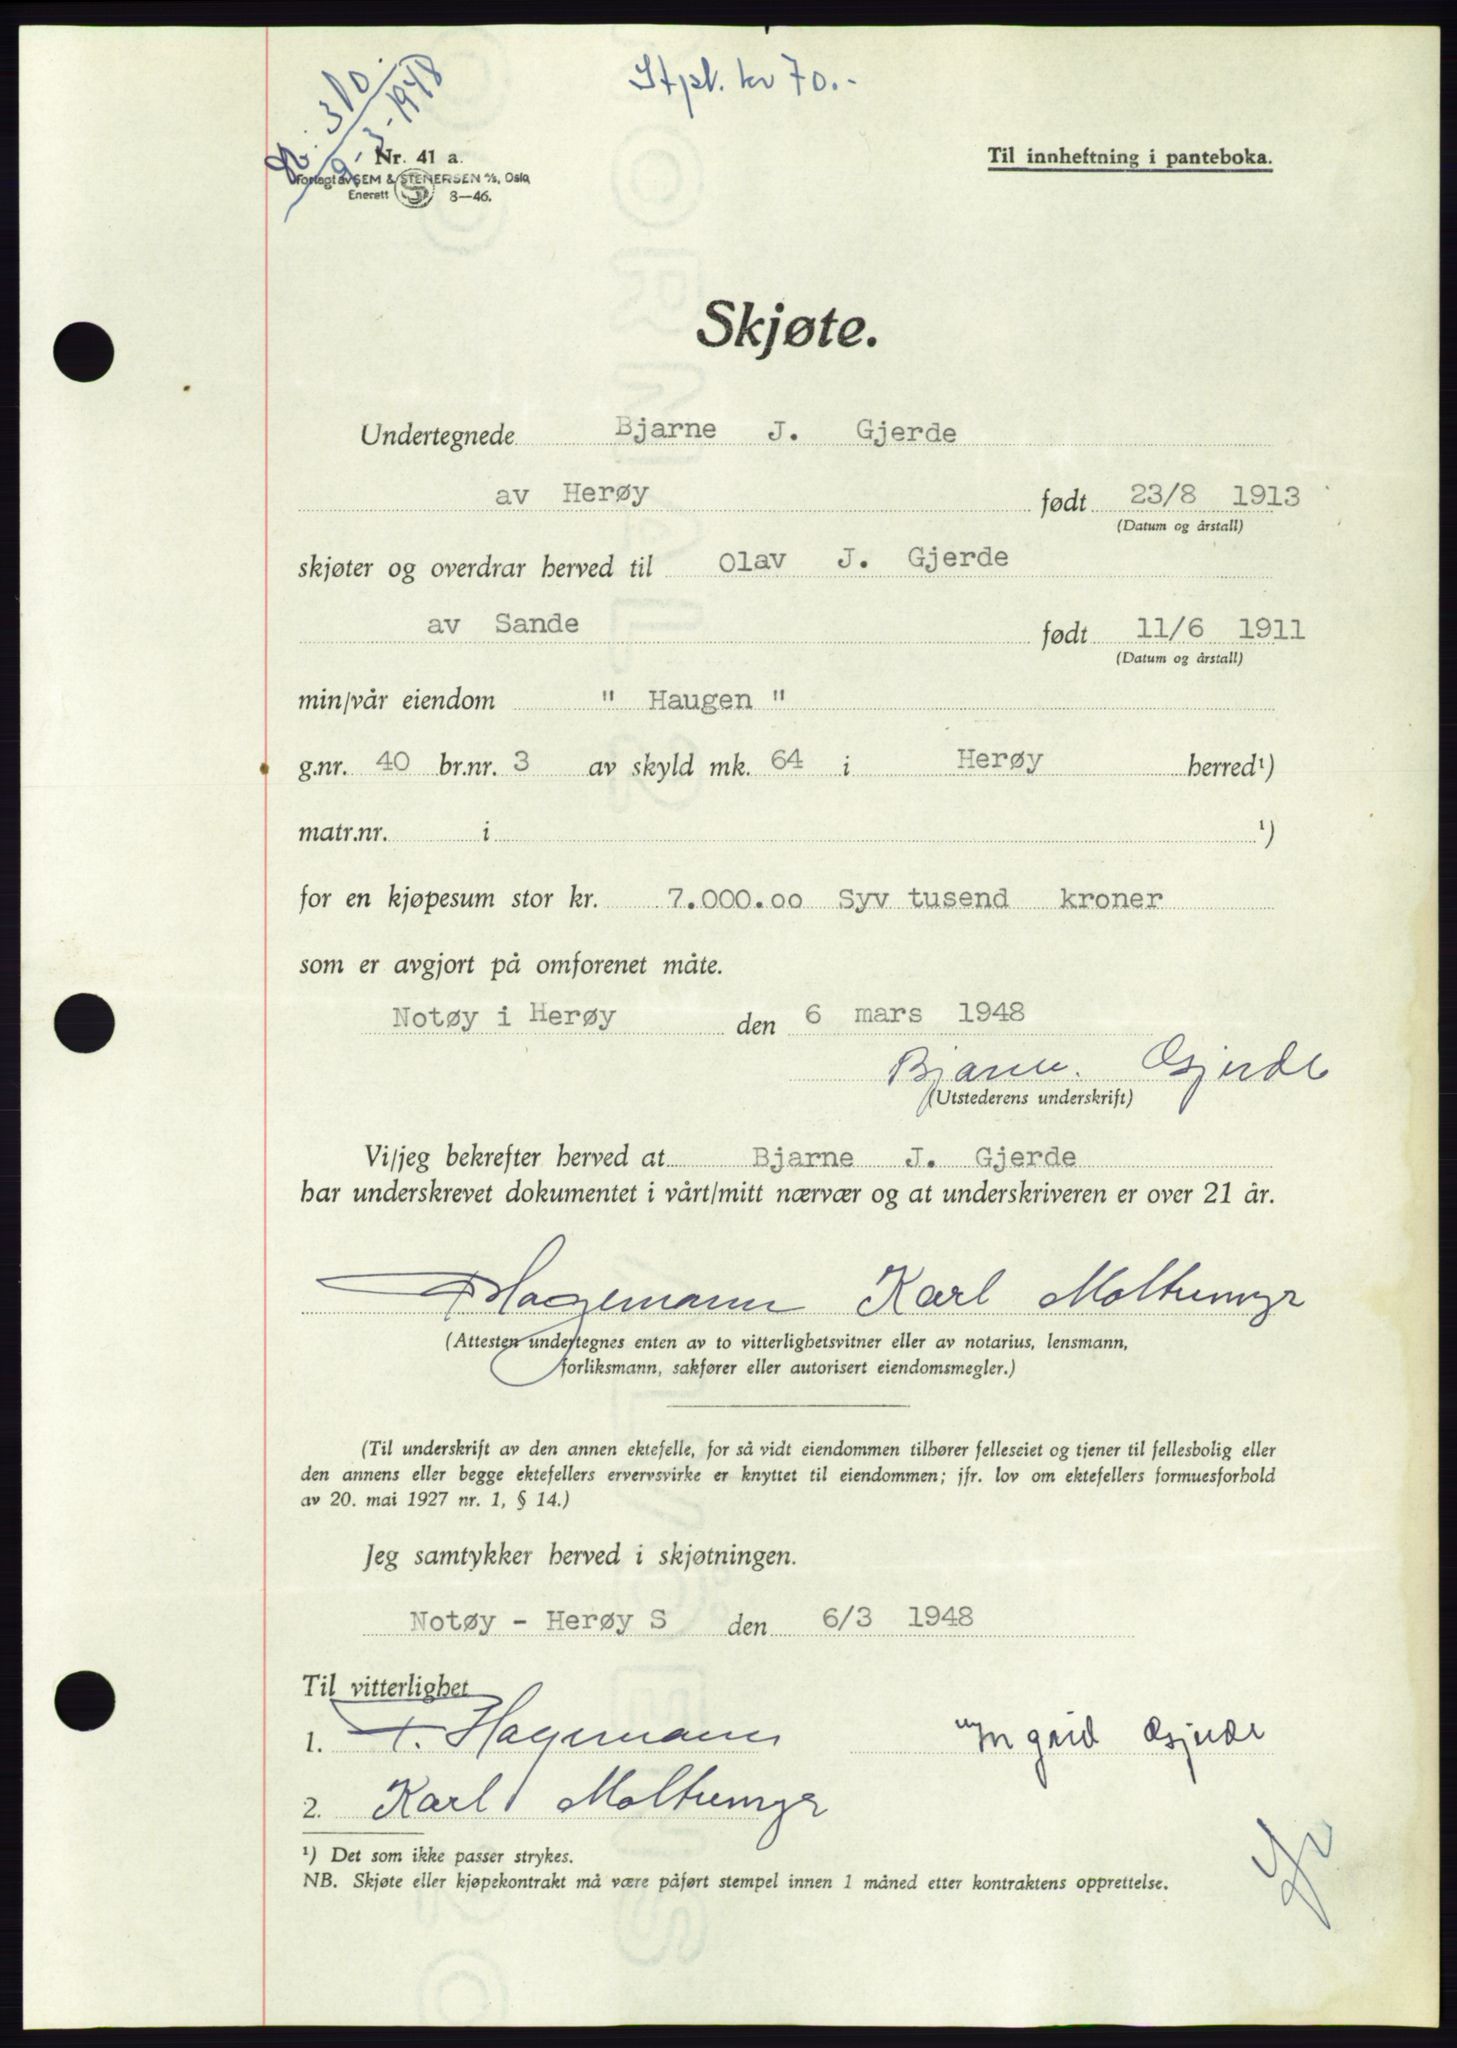 Stpl. kr 70.-
Nr. 310.
9-3-1948
Nr. 41 a.
Forlagt av SEM & STENERSEN A/S, Oslo
Enerett S 8—46.
Til innheftning i panteboka.
Skjøte.
Undertegnede Bjarne J. Gjerde
av Herøy født 23/8 1913
(Datum og årstall)
skjøter og overdrar herved til Olav J. Gjerde
av Sande født 11/6 1911
(Datum og årstall)
min/vår eiendom " Haugen "
g.nr. 40 br.nr. 3 av skyld mk. 64 i Herøy herred¹)
matr.nr. i ¹)
for en kjøpesum stor kr. 7.000.oo Syv tusend kroner
som er avgjort på omforenet måte.
Notøy i Herøy den 6 mars 1948
Bjarne. Gjerde
(Utstederens underskrift)
Vi/jeg bekrefter herved at Bjarne J. Gjerde
har underskrevet dokumentet i vårt/mitt nærvær og at underskriveren er over 21 år.
Hagemann Karl Moltumyr
(Attesten undertegnes enten av to vitterlighetsvitner eller av notarius, lensmann,
forliksmann, sakfører eller autorisert eiendomsmegler.)
(Til underskrift av den annen ektefelle, for så vidt eiendommen tilhører felleseiet og tjener til fellesbolig eller
den annens eller begge ektefellers ervervsvirke er knyttet til eiendommen; jfr. lov om ektefellers formuesforhold
av 20. mai 1927 nr. 1, § 14.)
Jeg samtykker herved i skjøtningen.
Notøy - Herøy S den 6/3 1948
Til vitterlighet
1. Hagemann Ingrid Gjerde
2. Karl Moltumyr
¹) Det som ikke passer strykes.
NB. Skjøte eller kjøpekontrakt må være påført stempel innen 1 måned etter kontraktens opprettelse.